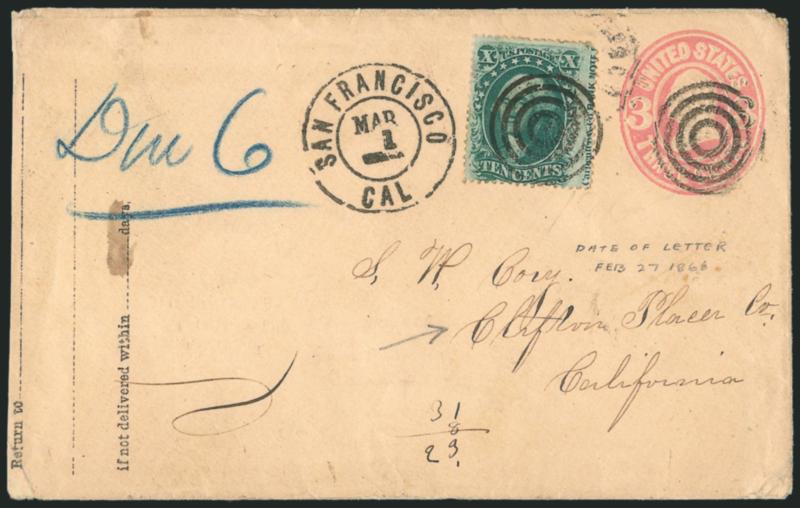 Due 6
SAN FRANCISCO
MAR
1
CAL
X U.S. POSTAGE X
TEN CENTS
BANK NOTE
UNITED STATES
3
DATE OF LETTER
FEB 27 1866
S. W. Cory.
Clifton Placer Co,
California
31
8
23.
Return to
if not delivered within days.